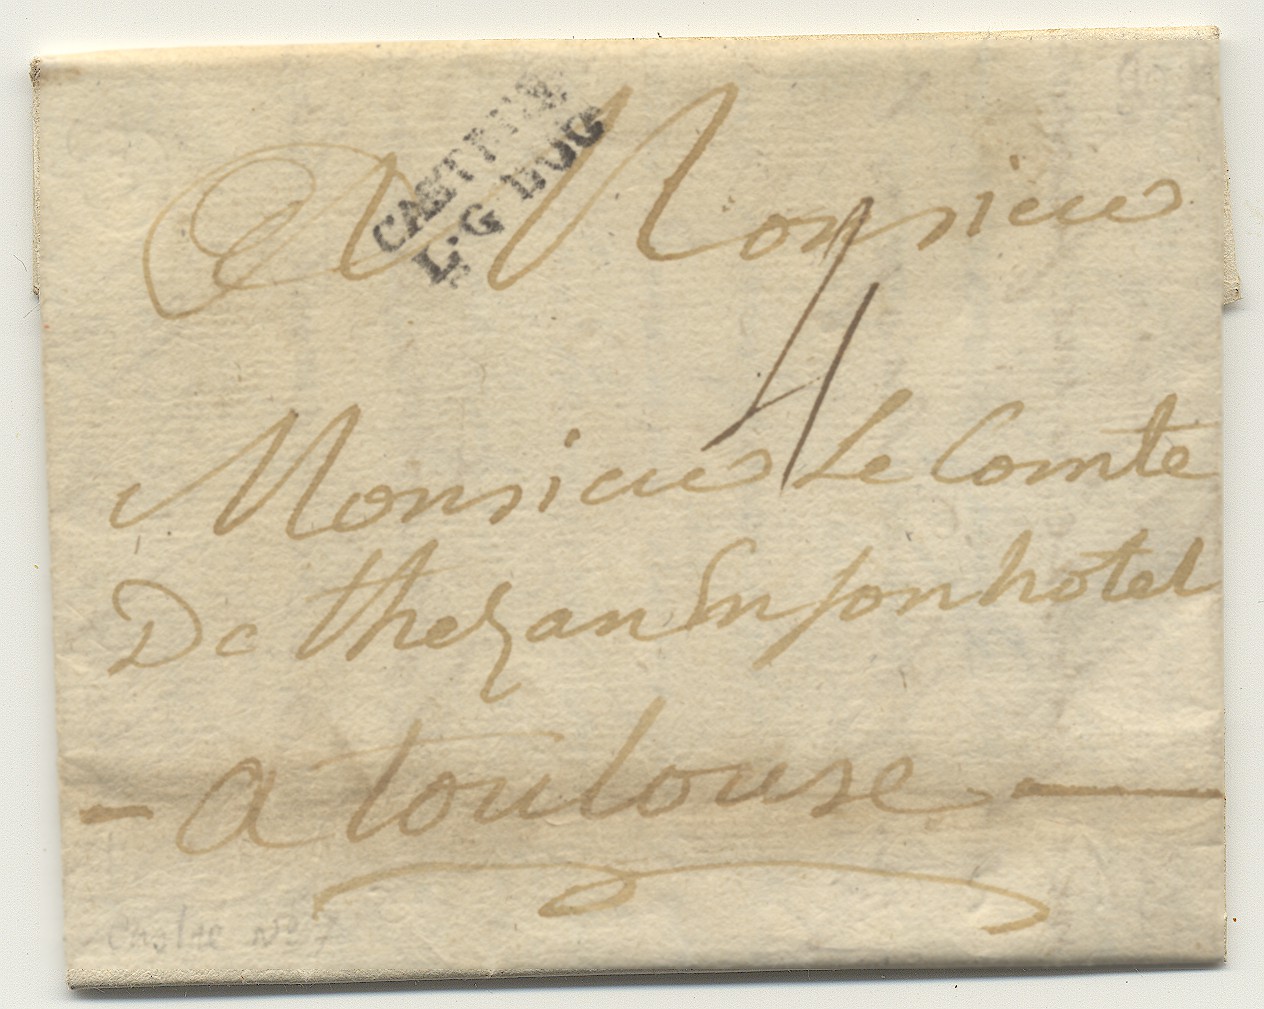 CASTRE
L·G DOC
A Monsieur
4
Monsieur Le Comte
De thezan En son hotel
a toulouse
Castre No 7